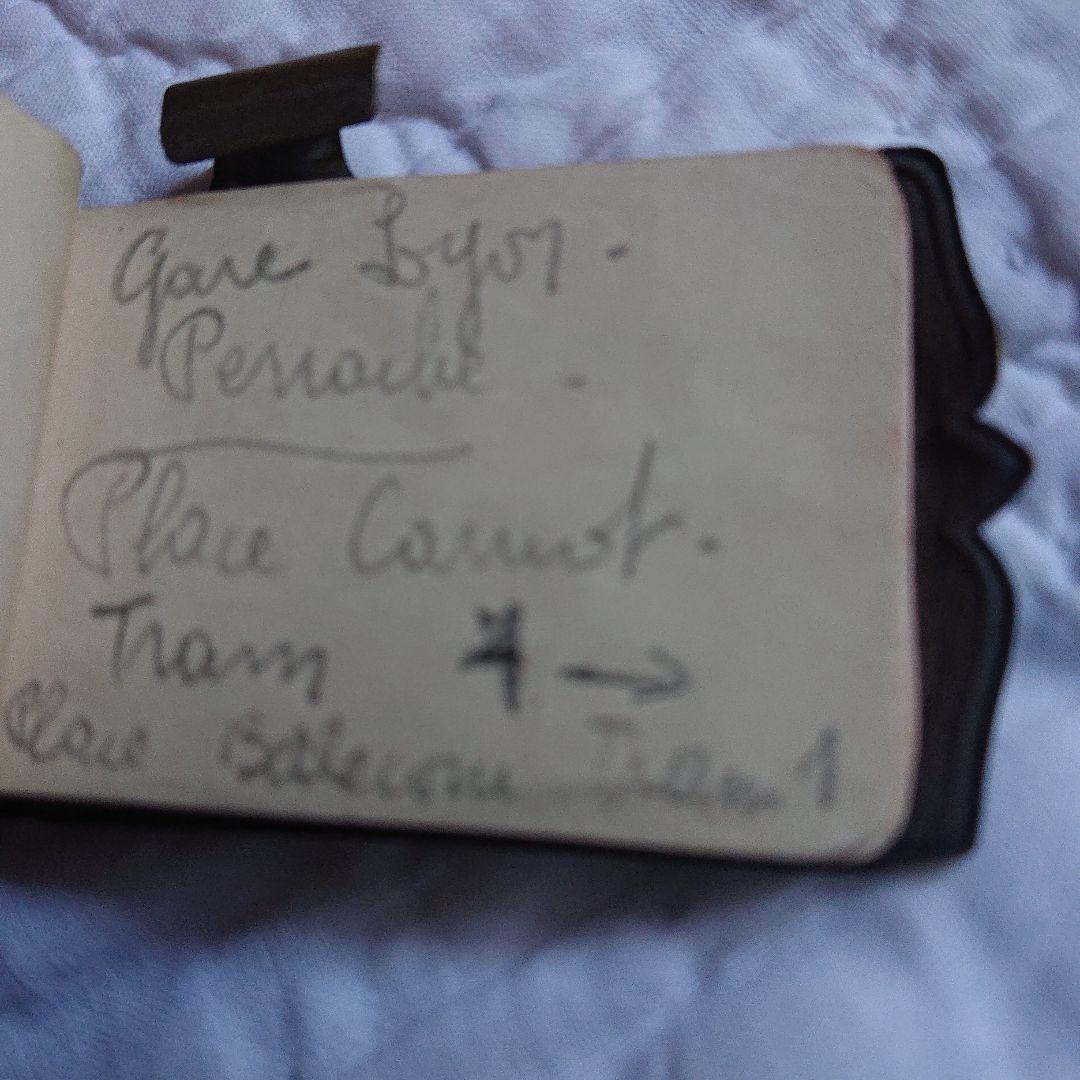 Gare Lyon.
Perrache.
Place Carnot.
Tram 4 →
Place Bellecour Tram 1